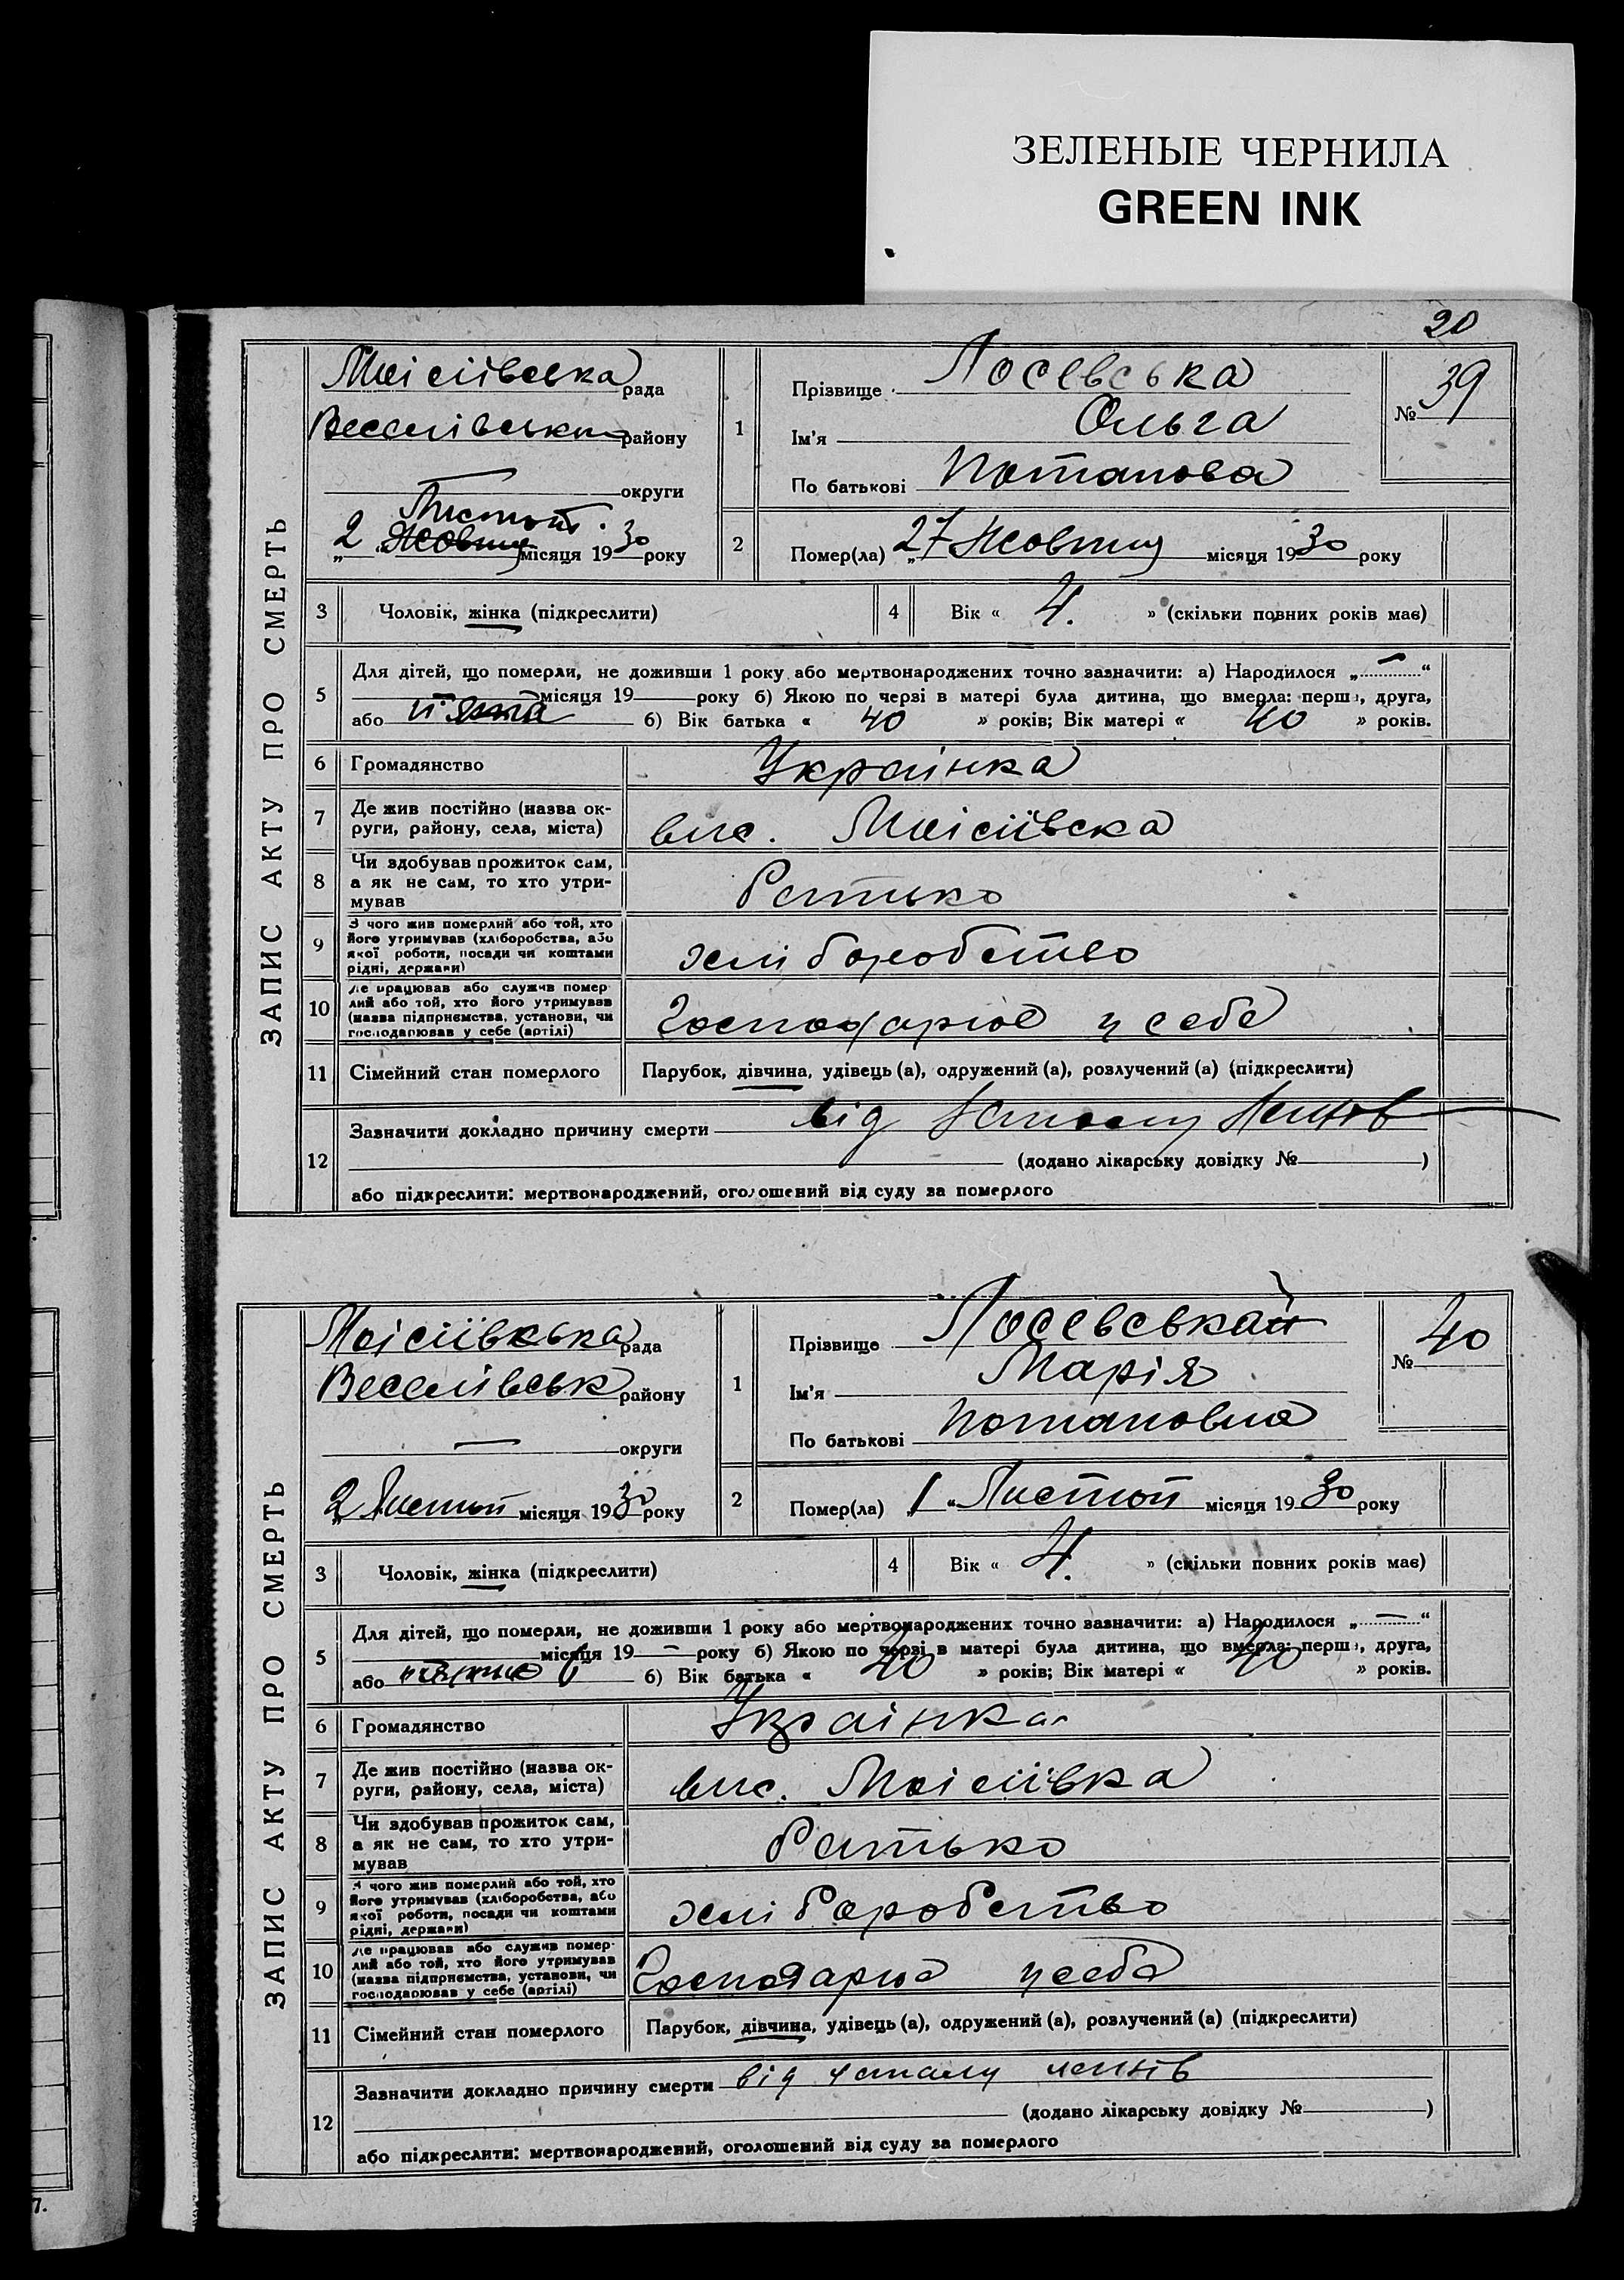 ЗЕЛЕНЫЕ ЧЕРНИЛА
GREEN INK
20
ЗАПИС АКТУ ПРО СМЕРТЬ
Моісіївська рада
Веселівськ району
округи
Листоп.
2 Жовтня місяця 1930 року
1
Прізвище Лосевська
Ім'я Ольга
По батькові Потапова
№ 39
2
Помер(ла) „27 Жовтня місяця 1930 року
3 Чоловік, жінка (підкреслити)
4 Вік « 4. » (скільки повних років має)
5 Для дітей, що померли, не доживши 1 року або мертвонароджених точно зазначити: а) Народилося „—“
місяця 19 року б) Якою по черзі в матері була дитина, що вмерла: перша, друга,
або п'ята б) Вік батька « 40 » років; Вік матері « 40 » років.
6 Громадянство Українка
7 Де жив постійно (назва ок-
руги, району, села, міста)
вис. Моісіївска
8 Чи здобував прожиток сам,
а як не сам, то хто утри-
мував
Батько
9 З чого жив померлий або той, хто
його утримував (хліборобства, або
якої роботи, посади чи коштами
рідні, держави)
хліборобство
10 Де працював або служив помер-
лий або той, хто його утримував
(назва підприємства, установи, чи
господарював у себе (артілі)
Господарює у себе
11 Сімейний стан померлого Парубок, дівчина, удівець (а), одружений (а), розлучений (а) (підкреслити)
12 Зазначити докладно причину смерти від
(додано лікарську довідку № )
або підкреслити: мертвонароджений, оголошений від суду за померлого
ЗАПИС АКТУ ПРО СМЕРТЬ
Моісіївська рада
Веселівськ району
— округи
2 Листоп місяця 1930 року
1
Прізвище
Ім'я Марія
По батькові Потаповна
№ 40
2
Помер(ла) „1“ Листоп місяця 1930 року
3 Чоловік, жінка (підкреслити)
4 Вік « 4. » (скільки повних років має)
5 Для дітей, що померли, не доживши 1 року або мертвонароджених точно зазначити: а) Народилося „—“
місяця 19 — року б) Якою по черзі в матері була дитина, що вмерла: перша, друга,
або б) Вік батька « 40 » років; Вік матері « 40 » років.
6 Громадянство Українка
7 Де жив постійно (назва ок-
руги, району, села, міста)
вис. Моісіївка
8 Чи здобував прожиток сам,
а як не сам, то хто утри-
мував
Батько
9 З чого жив померлий або той, хто
його утримував (хліборобства, або
якої роботи, посади чи коштами
рідні, держави)
хліборобство
10 Де працював або служив помер-
лий або той, хто його утримував
(назва підприємства, установи, чи
господарював у себе (артілі)
Господарює у себе
11 Сімейний стан померлого Парубок, дівчина, удівець (а), одружений (а), розлучений (а) (підкреслити)
12 Зазначити докладно причину смерти від
(додано лікарську довідку № )
або підкреслити: мертвонароджений, оголошений від суду за померлого